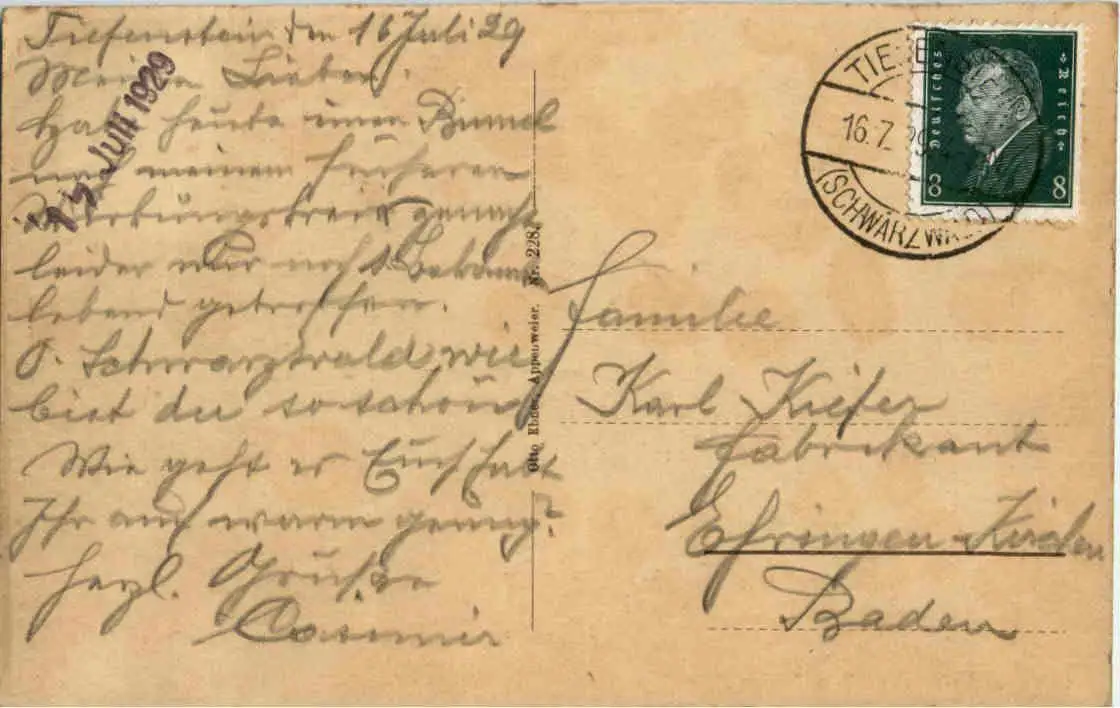 Tiefenstein den 16 Juli 29
Meine Lieben.
Hab heute einen Bumel
nach meinem früheren
Wirkungskreis gemacht
leider nur noch 1 Bekannte
lebend getroffen.
O. Schwarzwald wie
bist du so schön
Wie geht es Euch habt
Ihr auch warm genug?
Herzl. Grüsse
Casimir
17. Juli 1929
Otto Ebner, Appenweier. Nr. 228.
TIEFE
16.7. 29
(SCHWARZWALD)
Deutsches Reich
8 8
Familie
Karl Kiefer
Fabrikant
Efringen-Kirchen
Baden